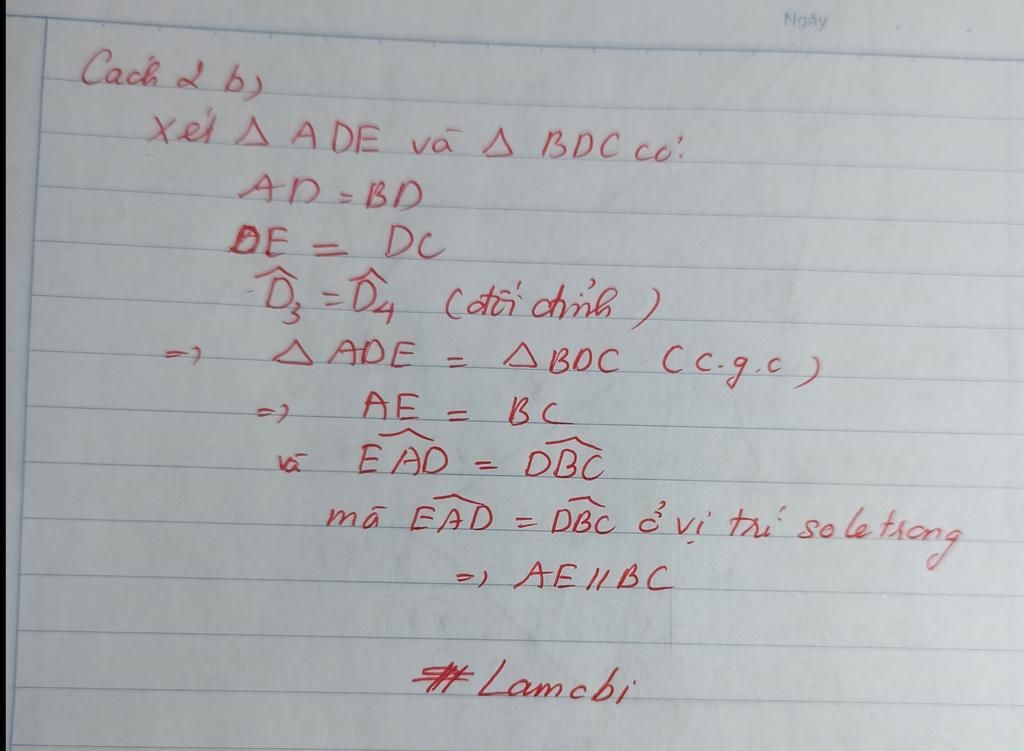 Ngày
Cách 2 b)
Xét Δ ADE và Δ BDC có:
AD = BD
DE = DC
D̂₃ = D̂₄ (đối đỉnh)
=> Δ ADE = Δ BDC (c.g.c)
=> AE = BC
và \widehat{EAD} = \widehat{DBC}
mà \widehat{EAD} = \widehat{DBC} ở vị trí so le trong
=> AE // BC
# Lamcbi